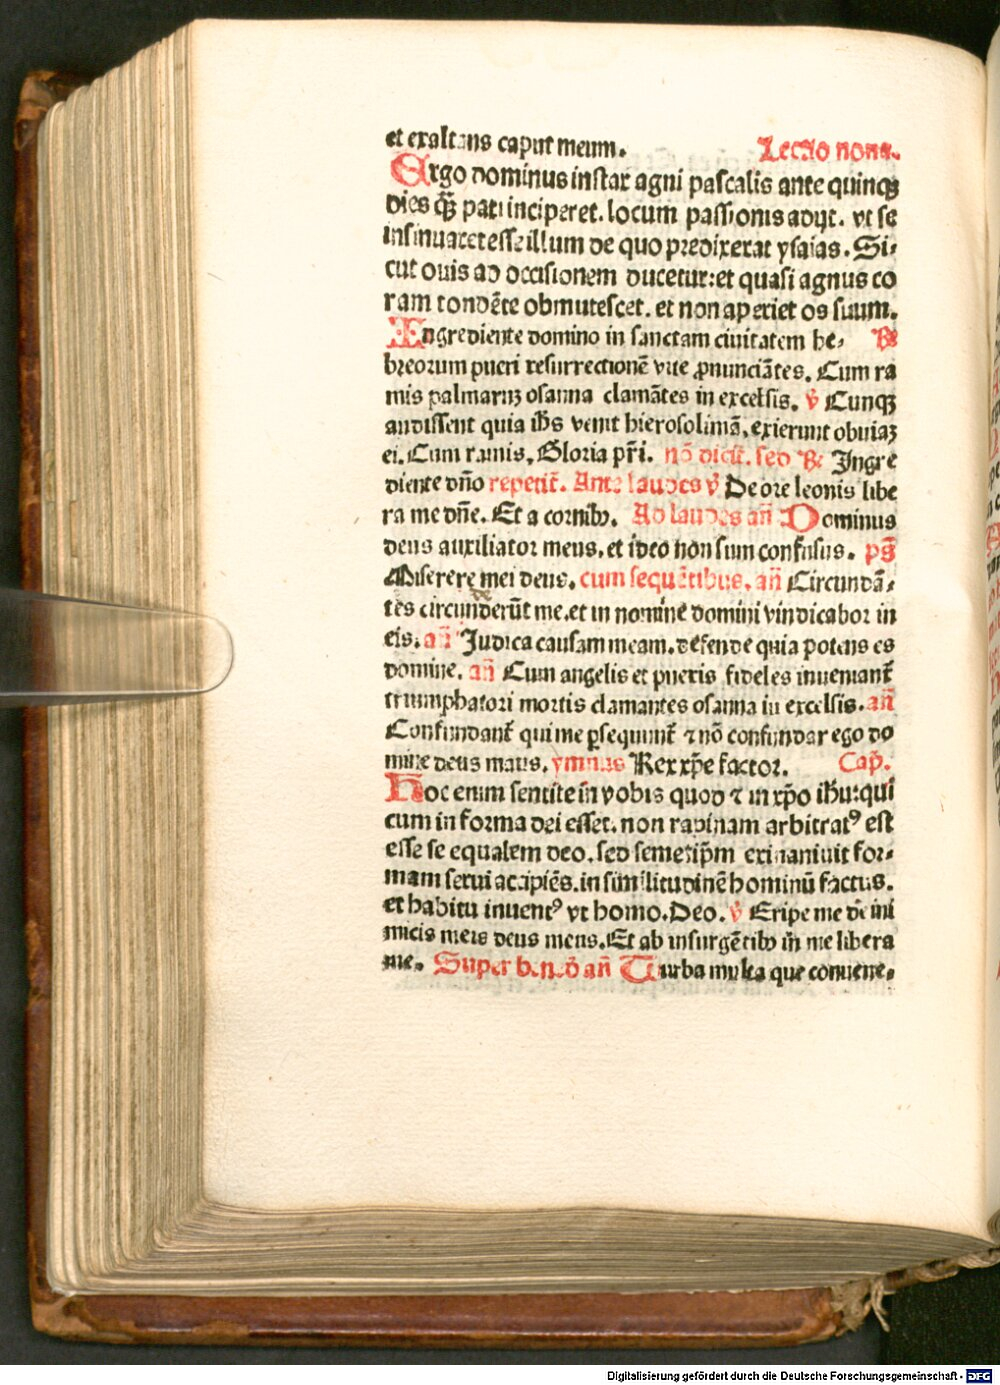 et exaltans caput meum. Lectio nona.
Ergo dominus instar agni pascalis ante quinqꝫ
dies qꝫ̄ pati inciperet. locum passionis adijt. vt se
insinuaret esse illum de quo predixerat ysaias. Si-
cut ouis ad occisionem ducetur: et quasi agnus co
ram tondēte obmutescet. et non aperiet os suum.
Ingrediente domino in sanctam ciuitatem he- ℞
breorum pueri resurrectionē vite ꝓnunciātes. Cum ra
mis palmaruꝫ osanna clamātes in excelsis. ℣ Cunqꝫ
audissent quia ihs̄ venit hierosolimā, exierunt obuiaꝫ
ei. Cum ramis. Gloria pr̄i. nō dicit̄. sed ℞ Ingre
diente dño repetit̄. Ante laudes ℣ De ore leonis libe
ra me dñe. Et a cornibꝰ. Ad laudes añ Dominus
deus auxiliator meus. et ideo non sum confusus. ps̄
Miserere mei deus. cum sequētibus. añ Circundā-
tes circunderūt me. et in nomine domini vindicabor in
eis. añ Judica causam meam. defende quia potens es
domine. añ Cum angelis et pueris fideles inueniant̄
triumphatori mortis clamantes osanna in excelsis. añ
Confundant̄ qui me ꝑsequunt̄ ⁊ nō confundar ego do
mine deus meus. ymnus Rex xp̄e factor. Cap̄.
Hoc enim sentite in vobis quod ⁊ in xp̄o ihū: qui
cum in forma dei esset. non rapinam arbitratꝰ est
esse se equalem deo. sed semetip̄m exinaniuit for-
mam serui accipiēs. in similitudinē hominū factus.
et habitu inuentꝰ vt homo. Deo. ℣ Eripe me de ini
micis meis deus meus. Et ab insurgētibꝰ in me libera
me. Super bened̄ añ Turba multa que conuene-
Digitalisierung gefördert durch die Deutsche Forschungsgemeinschaft - DFG